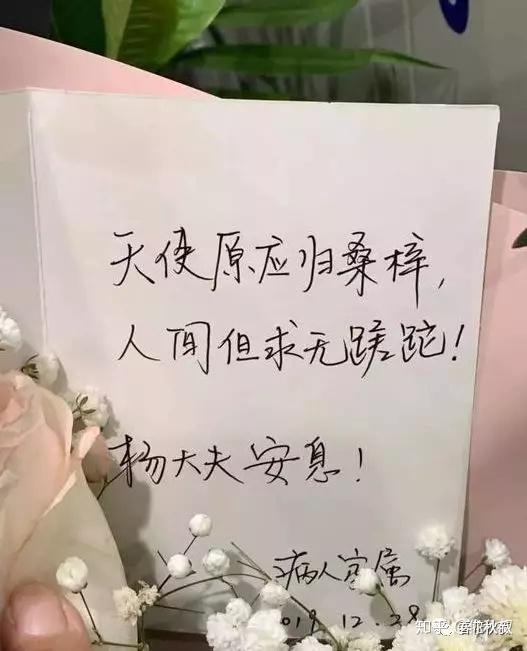 天使原应归桑梓，
人间但求无蹉跎！
杨大夫安息！
病人家属
019.12.28
知乎 @